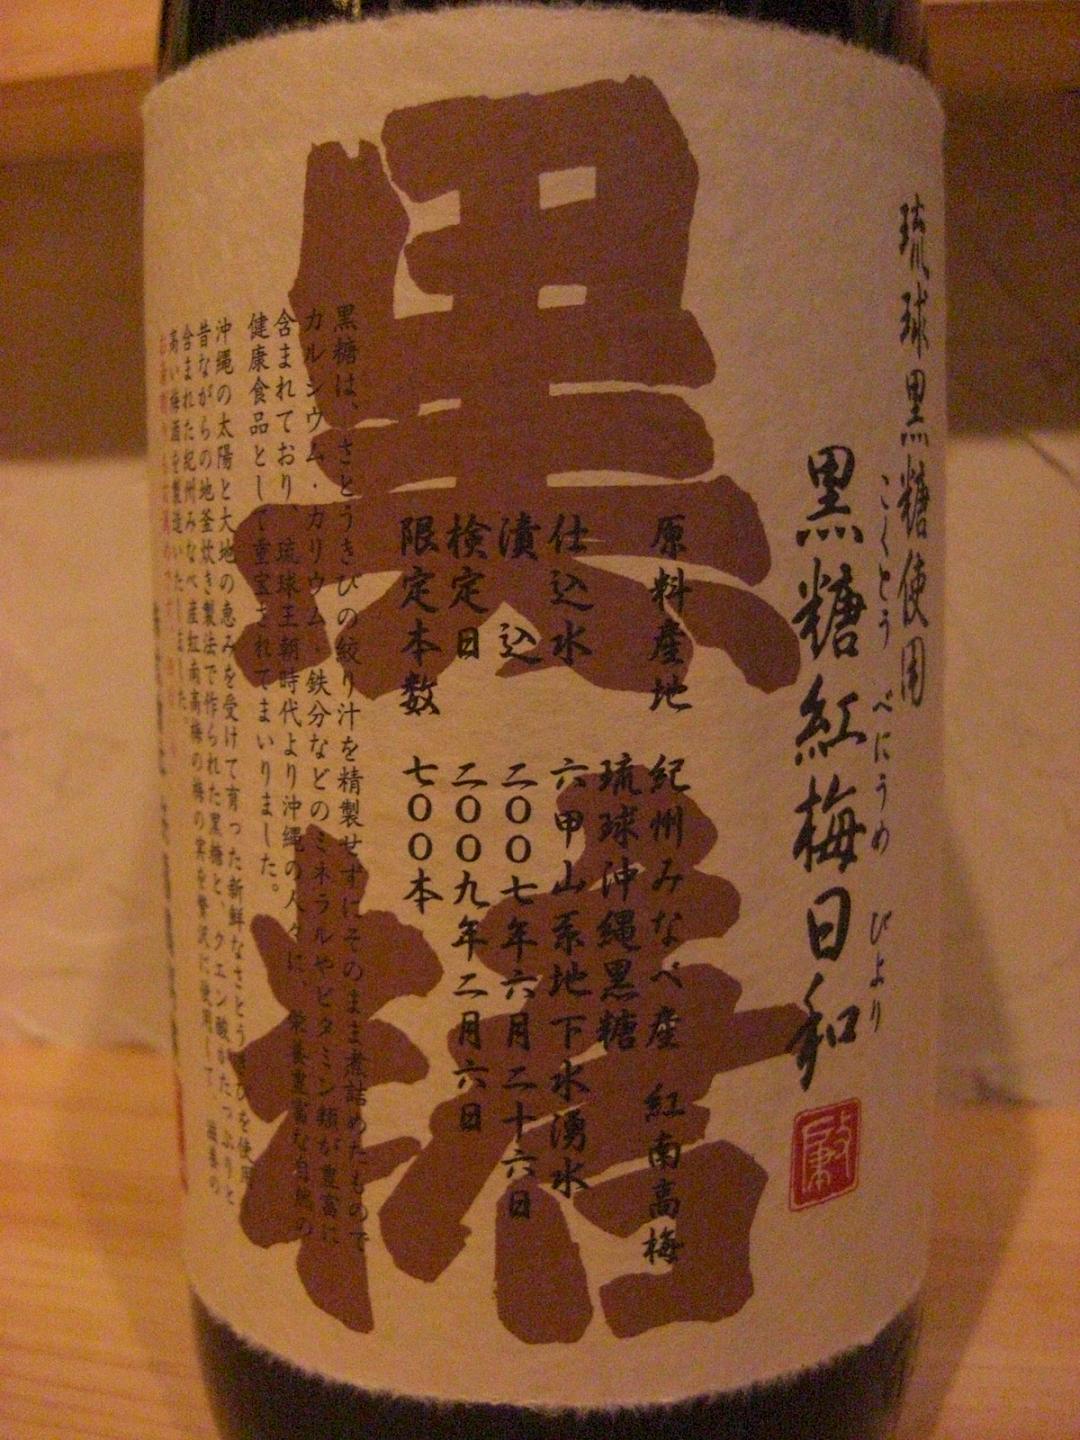 琉球黒糖使用
黒糖紅梅日和
こくとう べにうめ びより
黒糖
原料産地 紀州みなべ産 紅南高梅
琉球沖縄黒糖
仕込水 六甲山系地下水湧水
漬込 二〇〇七年六月二十六日
検定日 二〇〇九年二月六日
限定本数 七〇〇本
黒糖は、さとうきびの絞り汁を精製せずにそのまま煮詰めたもので
カルシウム・カリウム・鉄分などのミネラルやビタミン類が豊富に
含まれており、琉球王朝時代より沖縄の人々に、栄養豊富な自然の
健康食品として重宝されてまいりました。
沖縄の太陽と大地の恵みを受けて育った新鮮なさとうきびを使用
昔ながらの地釜炊き製法で作られた黒糖と、クエン酸がたっぷりと
含まれた紀州みなべ産紅南高梅の梅の実を贅沢に使用して、滋養の
高い梅酒を製造いたしました。